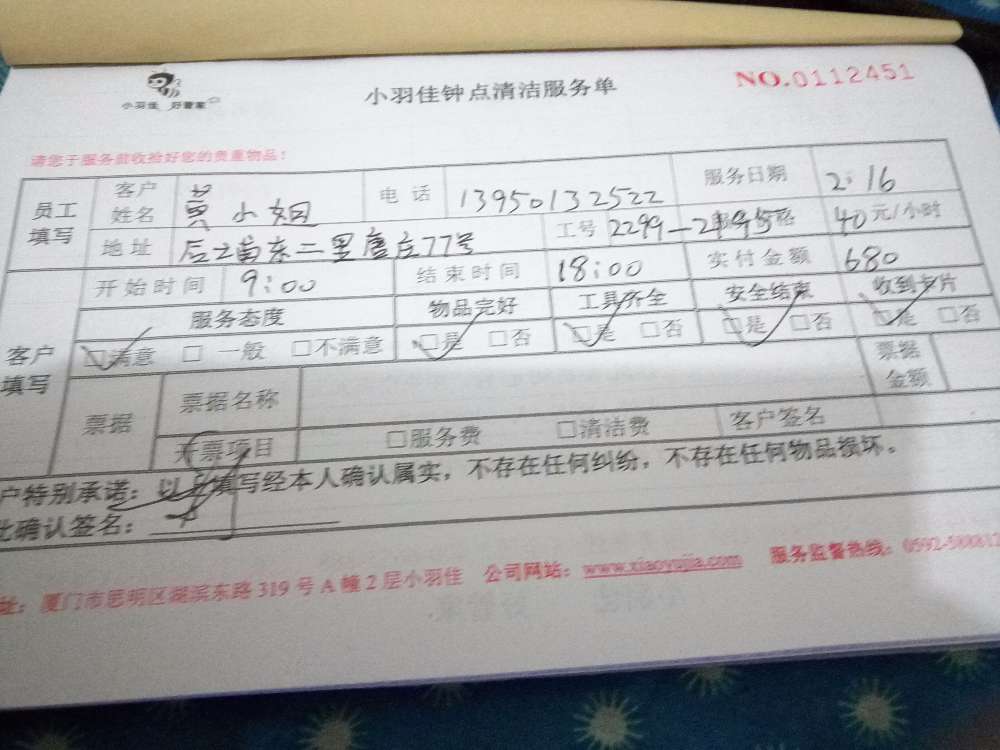 小羽佳 好管家
小羽佳钟点清洁服务单
NO.0112451
请您于服务前收捡好您的贵重物品！
员工填写 客户姓名 黄小姐 电话 13950132522 服务日期 2:16
地址 后工号 2299 40元/小时
开始时间 9:00 结束时间 18:00 实付金额 680
客户填写 服务态度 物品完好 工具齐全 安全结束 收到卡片
□满意 □一般 □不满意 □是 □否 □是 □否 □是 □否 □是 □否
票据 票据名称 票据金额
开票项目 □服务费 □清洁费 客户签名
户特别承诺：以上填写经本人确认属实，不存在任何纠纷，不存在任何物品损坏。
此确认签名：
址：厦门市思明区湖滨东路319号A幢2层小羽佳 公司网站：www.xiaoyujia.com 服务监督热线：0592-588812